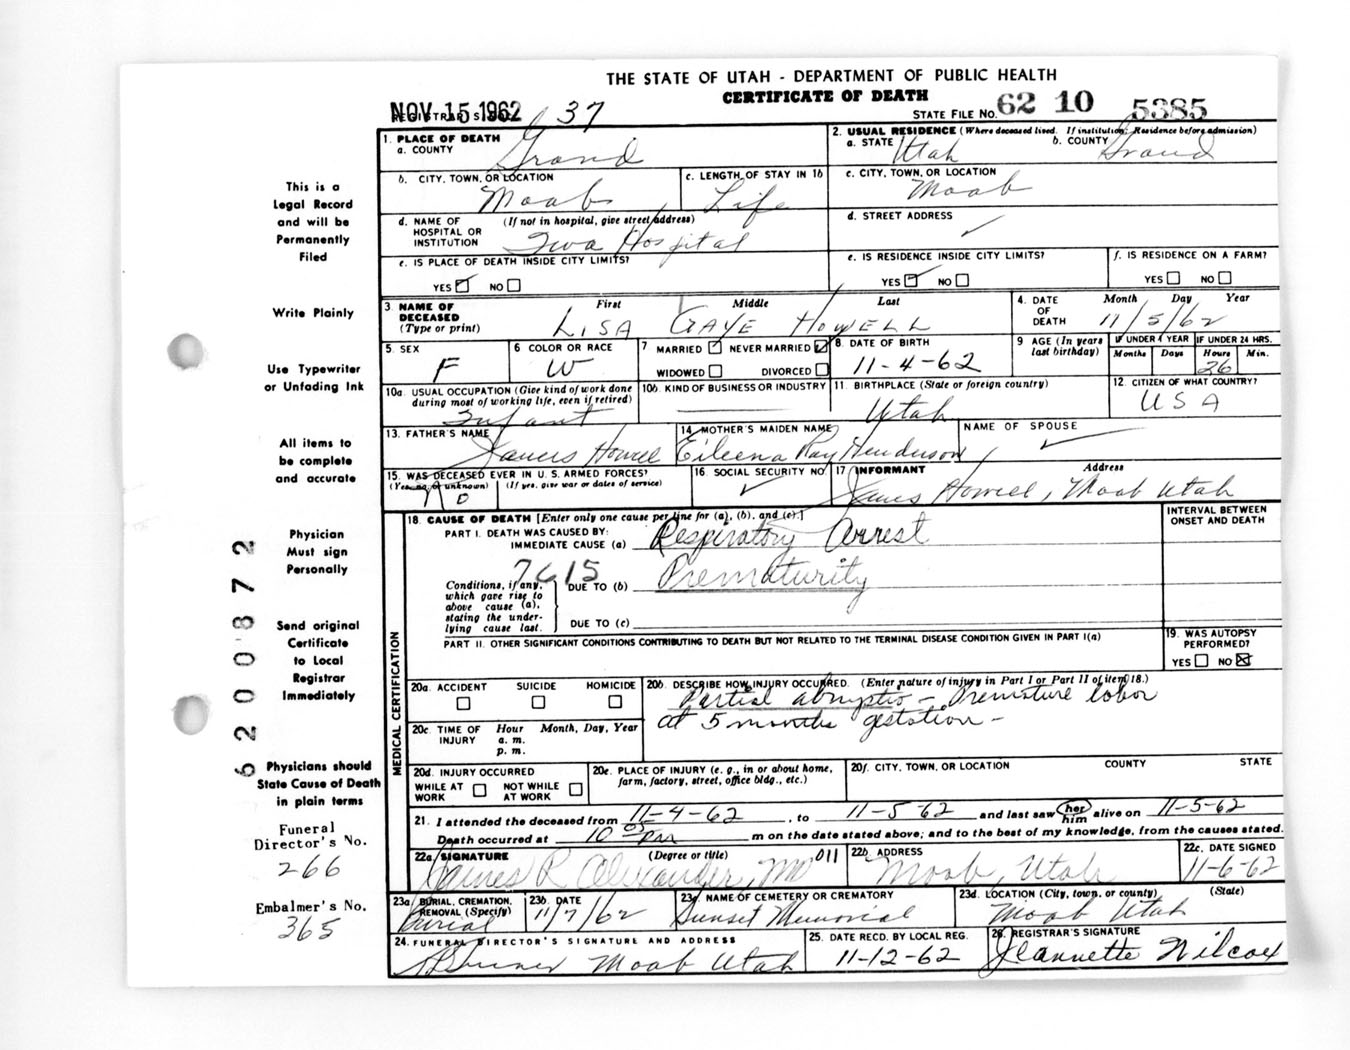 THE STATE OF UTAH - DEPARTMENT OF PUBLIC HEALTH
CERTIFICATE OF DEATH
NOV 15 1962 37
STATE FILE NO. 62 10 5385
1. PLACE OF DEATH
a. COUNTY Grand
2. USUAL RESIDENCE (Where deceased lived. If institution: Residence before admission)
a. STATE Utah b. COUNTY Grand
b. CITY, TOWN, OR LOCATION Moab
c. LENGTH OF STAY IN 1b Life
c. CITY, TOWN, OR LOCATION Moab
d. NAME OF HOSPITAL OR INSTITUTION (If not in hospital, give street address) Hospital
d. STREET ADDRESS
e. IS PLACE OF DEATH INSIDE CITY LIMITS?
YES NO
e. IS RESIDENCE INSIDE CITY LIMITS?
YES NO
f. IS RESIDENCE ON A FARM?
YES NO
3. NAME OF DECEASED (Type or print) First Middle Last
LISA GAYE HOWELL
4. DATE OF DEATH Month Day Year
11/5/62
5. SEX F
6 COLOR OR RACE W
7 MARRIED NEVER MARRIED
WIDOWED DIVORCED
8. DATE OF BIRTH
11-4-62
9 AGE (In years last birthday)
IF UNDER 1 YEAR Months Days
IF UNDER 24 HRS. Hours Min.
26
10a. USUAL OCCUPATION (Give kind of work done during most of working life, even if retired)
Infant
10b. KIND OF BUSINESS OR INDUSTRY
11. BIRTHPLACE (State or foreign country)
Utah
12. CITIZEN OF WHAT COUNTRY?
USA
13. FATHER'S NAME
James Howell
14 MOTHER'S MAIDEN NAME
Eileena Ray Henderson
NAME OF SPOUSE
15. WAS DECEASED EVER IN U. S. ARMED FORCES?
(Yes, no, or unknown) (If yes, give war or dates of service)
No
16. SOCIAL SECURITY NO.
17 INFORMANT Address
James Howell, Moab Utah
18. CAUSE OF DEATH [Enter only one cause per line for (a), (b), and (c).]
INTERVAL BETWEEN ONSET AND DEATH
PART I. DEATH WAS CAUSED BY:
IMMEDIATE CAUSE (a) Respiratory Arrest
7615
Conditions, if any, which gave rise to above cause (a), stating the underlying cause last.
DUE TO (b) Prematurity
DUE TO (c)
PART II. OTHER SIGNIFICANT CONDITIONS CONTRIBUTING TO DEATH BUT NOT RELATED TO THE TERMINAL DISEASE CONDITION GIVEN IN PART I(a)
19. WAS AUTOPSY PERFORMED?
YES NO
MEDICAL CERTIFICATION
20a. ACCIDENT SUICIDE HOMICIDE
20b. DESCRIBE HOW INJURY OCCURRED. (Enter nature of injury in Part I or Part II of item 18.)
Partial abruptio - Premature labor
at 5 months gestation -
20c. TIME OF INJURY Hour Month, Day, Year
a. m.
p. m.
20d. INJURY OCCURRED
WHILE AT WORK NOT WHILE AT WORK
20e. PLACE OF INJURY (e. g., in or about home, farm, factory, street, office bldg., etc.)
20f. CITY, TOWN, OR LOCATION COUNTY STATE
21. I attended the deceased from 11-4-62, to 11-5-62 and last saw her him alive on 11-5-62
Death occurred at 10 m on the date stated above; and to the best of my knowledge, from the causes stated.
22a. SIGNATURE (Degree or title)
James R Alexander, MD 011
22b. ADDRESS
Moab, Utah
22c. DATE SIGNED
11-6-62
23a. BURIAL, CREMATION, REMOVAL (Specify)
Burial
23b. DATE
11/7/62
23c. NAME OF CEMETERY OR CREMATORY
Sunset Memorial
23d. LOCATION (City, town, or county) (State)
Moab Utah
24. FUNERAL DIRECTOR'S SIGNATURE AND ADDRESS
Moab Utah
25. DATE RECD. BY LOCAL REG.
11-12-62
26. REGISTRAR'S SIGNATURE
Jeannette Wilcox
This is a
Legal Record
and will be
Permanently
Filed
Write Plainly
Use Typewriter
or Unfading Ink
All items to
be complete
and accurate
Physician
Must sign
Personally
Send original
Certificate
to Local
Registrar
Immediately
Physicians should
State Cause of Death
in plain terms
Funeral
Director's No.
266
Embalmer's No.
365
6200872